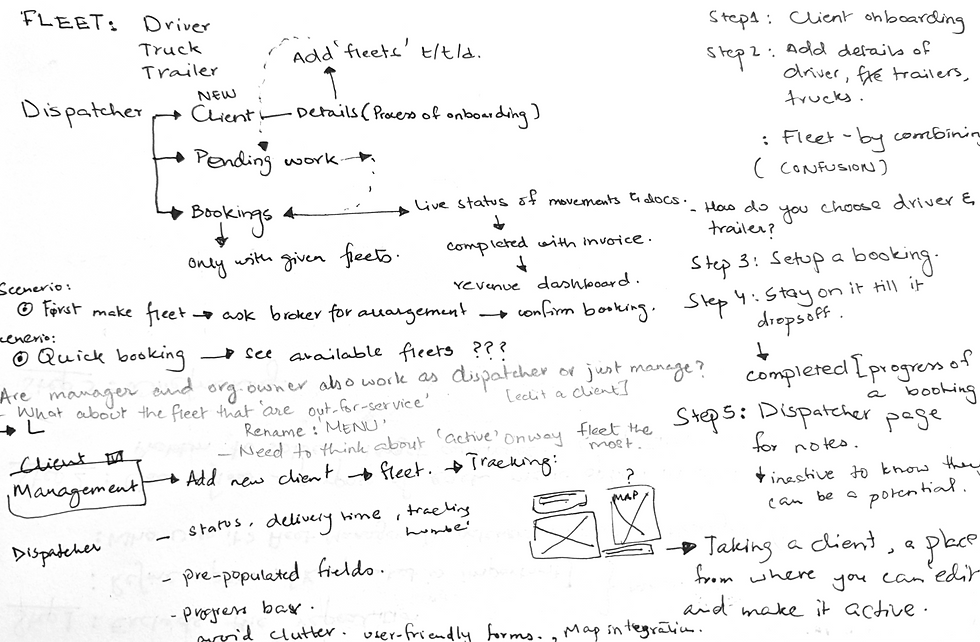 FLEET: Driver
Truck
Trailer
Add 'fleets' t/t/d.
NEW
Dispatcher → Client — Details (Process of onboarding)
→ Pending work →
→ Bookings ↔ Live status of movements & docs.
only with given fleets.
completed with invoice.
revenue dashboard.
Scenerio:
First make fleet → ask broker for arrangement → confirm booking.
cenerio:
Quick booking → see available fleets ???
Are manager and org-owner also work as dispatcher or just manage?
- What about the fleet that 'are out-for-service'
[edit a client]
→ L
Rename: 'MENU'
- Need to think about 'active' onway fleet the most.
Client
Management → Add new client → fleet. → Tracking:
Dispatcher
- status, delivery time, tracking number
- pre-populated fields.
- progress bar.
avoid clutter. user-friendly forms., Map integration.
Step 1: Client onboarding
Step 2: Add details of
driver, trailers,
trucks.
: Fleet - by combining
(CONFUSION)
- How do you choose driver &
trailer?
Step 3: Setup a booking.
Step 4: Stay on it till it
dropsoff.
completed [progress of
a booking
Step 5: Dispatcher page
for notes.
inactive to know they
can be a potential.
?
MAP
→ Taking a client, a place
from where you can edit
and make it active.